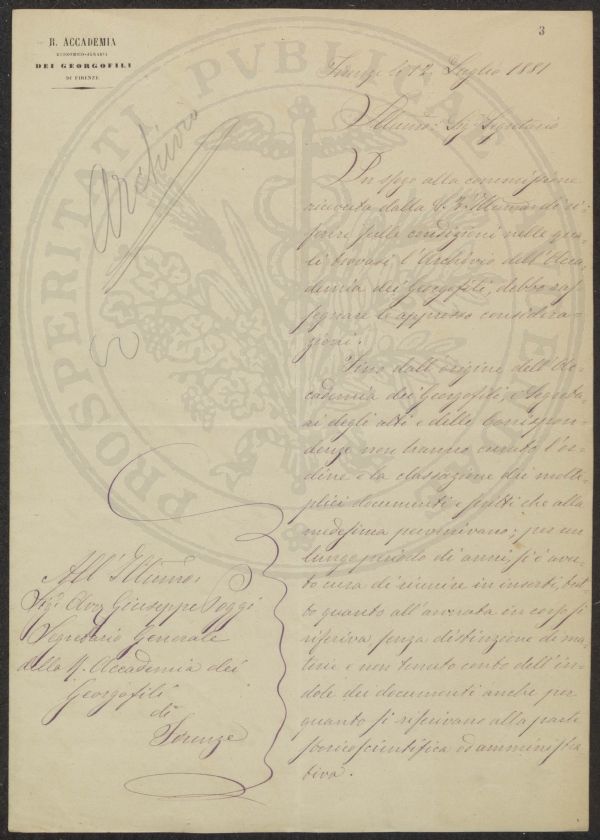 3
R. ACCADEMIA
ECONOMICO-AGRARIA
DEI GEORGOFILI
DI FIRENZE
Firenze li 12 Luglio 1881
Archivio
Illmo: Sigr Segretario
In sfogo alla commissione
ricevuta dalla S. V. Illma di ri-
ferire sulle condizioni nelle qua-
li trovasi l'Archivio dell'Acca-
demia dei Georgofili, debbo ras-
segnare le appresso considera-
zioni.
Fino dall'origine dell'Ac-
cademia dei Georgofili, i Segreta-
ri degli atti e delle Corrispon-
denze non hanno curato l'or-
dine e la classazione dei molte-
plici documenti e scritti che alla
medesima pervenivano; per un
lungo periodo di anni, si è avu-
to cura di riunire in inserti, tut-
to quanto all'annata in corso si
riferiva senza distinzione di ma-
terie e non tenuto conto dell'in-
dole dei documenti anche per
quanto si riferivano alla parte
storico scientifica ed amministra-
tiva.
All'Illmo:
Sigr Avv Giuseppe Poggi
Segretario Generale
della R. Accademia dei
Georgofili
di
Firenze
PROSPERITATI PUBLICAE